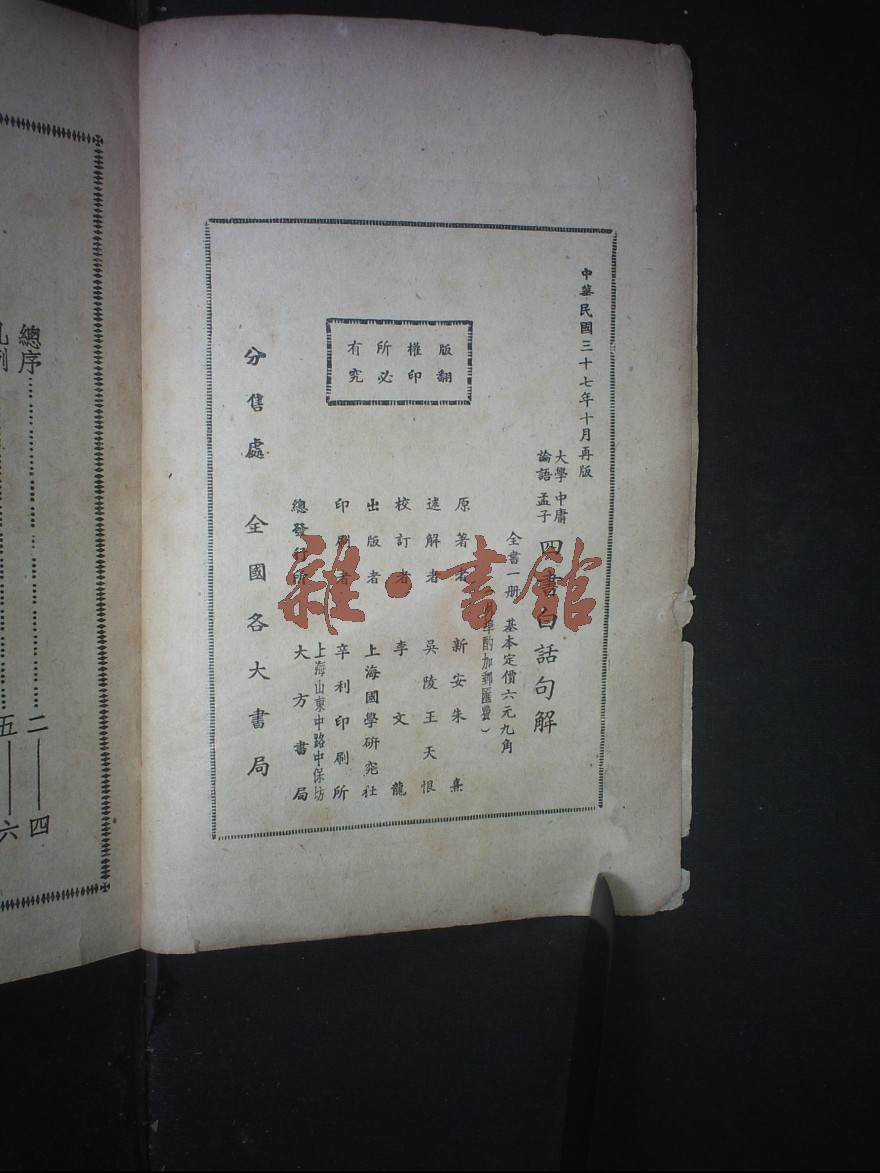 中華民國三十七年十月再版
大學 中庸
論語 孟子
四書白話句解
全書一册 基本定價六元九角
埠酌加郵匯費)
原著者 新安朱熹
述解者 吳陵王天恨
校訂者 李文龍
出版者 上海國學研究社
印刷者 辛利印刷所
上海山東中路中保坊
總發行所 大方書局
版權所有
翻印必究
分售處 全國各大書局
總序 二——四
凡例 五——六
雜·書館